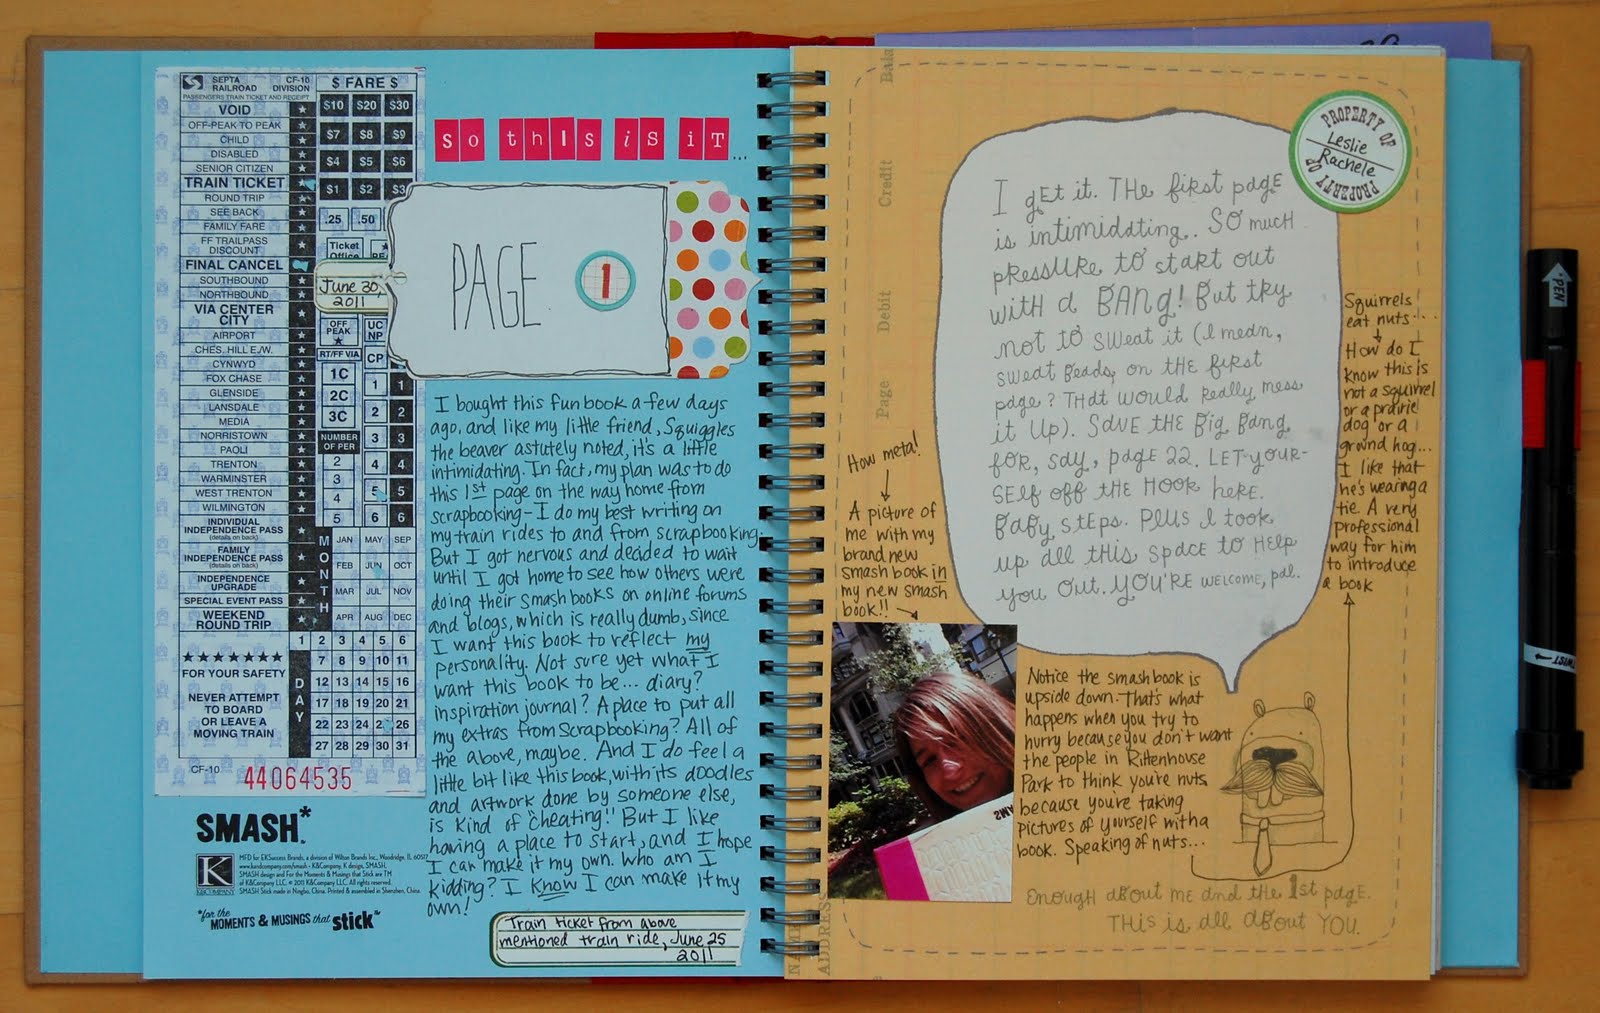 SEPTA RAILROAD
CF-10 DIVISION
PASSENGERS TRAIN TICKET AND RECEIPT
VOID
OFF-PEAK TO PEAK
CHILD
DISABLED
SENIOR CITIZEN
TRAIN TICKET
ROUND TRIP
SEE BACK
FAMILY FARE
FF TRAILPASS
DISCOUNT
FINAL CANCEL
SOUTHBOUND
NORTHBOUND
VIA CENTER
CITY
AIRPORT
CHES. HILL E./W.
CYNWYD
FOX CHASE
GLENSIDE
LANSDALE
MEDIA
NORRISTOWN
PAOLI
TRENTON
WARMINSTER
WEST TRENTON
WILMINGTON
INDIVIDUAL
INDEPENDENCE PASS
(details on back)
FAMILY
INDEPENDENCE PASS
(details on back)
INDEPENDENCE
UPGRADE
SPECIAL EVENT PASS
WEEKEND
ROUND TRIP
FOR YOUR SAFETY
NEVER ATTEMPT
TO BOARD
OR LEAVE A
MOVING TRAIN
CF-10
44064535
$ FARE $
$10 $20 $30
$7 $8 $9
$4 $5 $6
$1 $2 $3
.25 .50
Ticket
Office
OFF
PEAK
UC
NP
RT/FF VIA
CP
1C 1 1
2C 2 2
3C
NUMBER
OF PER
3 3
2 4 4
3 5 5
4 6 6
5
MONTH
JAN MAY SEP
FEB JUN OCT
MAR JUL NOV
APR AUG DEC
DAY
1 2 3 4 5 6
7 8 9 10 11
12 13 14 15 16
17 18 19 20 21
22 23 24 25 26
27 28 29 30 31
SMASH*
K
K&COMPANY
MFD for EKSuccess Brands, a division of Wilton Brands Inc., Woodridge, IL 60517
www.kandcompany.com/smash - K&Company, K design, SMASH,
SMASH design and For the Moments & Musings that Stick are TM
of K&Company LLC. © 2011 K&Company LLC. All rights reserved.
SMASH Stick made in Ningbo, China. Printed & assembled in Shenzhen, China.
"for the
MOMENTS & MUSINGS that stick"
So thIs is iT...
PAGE 1
June 30,
2011
I bought this fun book a few days
ago, and like my little friend, Squiggles
the beaver astutely noted, it's a little
intimidating. In fact, my plan was to do
this 1st page on the way home from
scrapbooking - I do my best writing on
my train rides to and from scrapbooking.
But I got nervous and decided to wait
until I got home to see how others were
doing their smash books on online forums
and blogs, which is really dumb, since
I want this book to reflect my
personality. Not sure yet what I
want this book to be... diary?
inspiration journal? A place to put all
my extras from scrapbooking? All of
the above, maybe. And I do feel a
little bit like this book, with its doodles
and artwork done by someone else,
is kind of "cheating!" But I like
having a place to start, and I hope
I can make it my own. Who am I
kidding? I know I can make it my
own!
Train ticket from above
mentioned train ride, June 25
2011
Balance
Credit
Debit
Page
NAME
ADDRESS
PROPERTY OF
Leslie
Rachele
PROPERTY OF
I get it. The first page
is intimidating. So much
pressure to start out
with a BANG! But try
not to sweat it (I mean,
sweat beads, on the first
page? That would really mess
it up). Save the big bang
for, say, page 22. Let your-
self off the hook here.
Baby steps. Plus I took
up all this space to help
you out. You're welcome, pal.
How meta!
A picture of
me with my
brand new
smash book in
my new smash
book!!
Squirrels
eat nuts....
How do I
know this is
not a squirrel
or a prairie
dog or a
ground hog...
I like that
he's wearing a
tie. A very
professional
way for him
to introduce
a book
Notice the smash book is
upside down. That's what
happens when you try to
hurry because you don't want
the people in Rittenhouse
Park to think you're nuts
because you're taking
pictures of yourself with a
book. Speaking of nuts...
Enough about me and the 1st page.
This is all about YOU.
PEN
TWIST